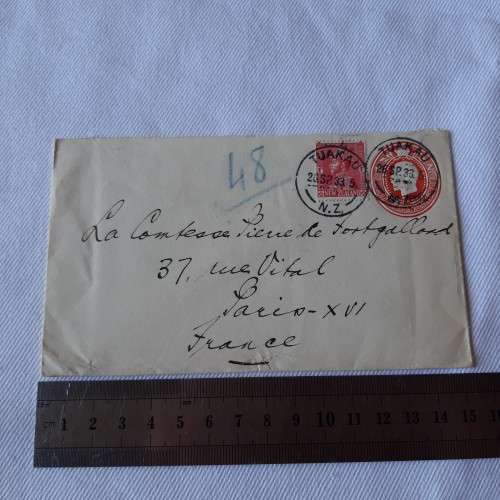 48
TUAKAU
28 SP 33. 5
N.Z.
TUAKAU
28 SP 33.
La Comtesse Pierre de Fortgalland
37, rue Vital
Paris-XVI
France
1 2 3 4 5 6 7 8 9 10 11 12 13 14 15